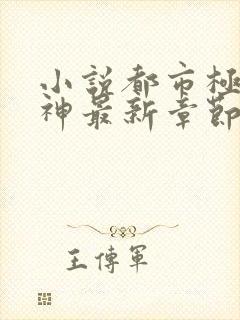 小說都市極
神最新章節
王傳軍